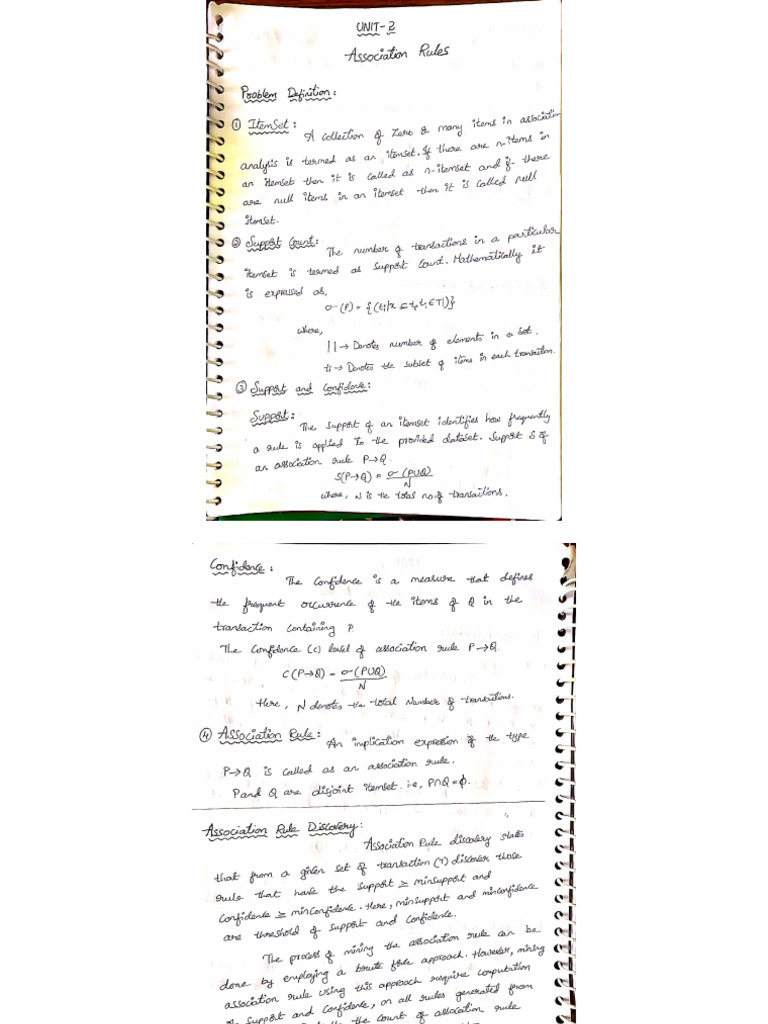 UNIT-2
Association Rules
Problem Definition:
① ItemSet:
A collection of Zero & many items in association
analysis is termed as an itemset. If there are n-items in
an itemset then it is called as n-itemset and if there
are null items in an itemset then it is called null
itemset.
② Support Count:
The number of transactions in a particular
itemset is termed as Support Count. Mathematically it
is expressed as,
σ(P) = {(ti/x ⊆ ti, ti ∈ T|)}
where,
|| → Denotes number of elements in a set.
ti → Denotes the subset of items in each transaction.
③ Support and Confidence:
Support:
The Support of an itemset identifies how frequently
a rule is applied to the provided dataset. Support S of
an association rule P→Q.
S(P→Q) = σ(PUQ)
N
where, N is the total no.of transactions.
Confidence:
The Confidence is a measure that defines
the frequent occurrence of the items of Q in the
transaction containing P.
The Confidence (c) level of association rule P→Q.
C(P→Q) = σ(PUQ)
N
Here, N denotes the total Number of transactions.
④ Association Rule:
An implication expression of the type
P→Q is called as an association rule.
P and Q are disjoint itemset. i.e, P∩Q=ϕ.
Association Rule Discovery:
Association Rule discovery states
that from a given set of transaction (T) discover those
rule that have the support ≥ minsupport and
Confidence ≥ minConfidence. Here, minsupport and minconfidence
are threshold of support and Confidence.
The process of mining the association rule can be
done by employing a brute force approach. However, mining
association rule using this approach require computation
Support and Confidence, on all rules generated from
the count of association rule